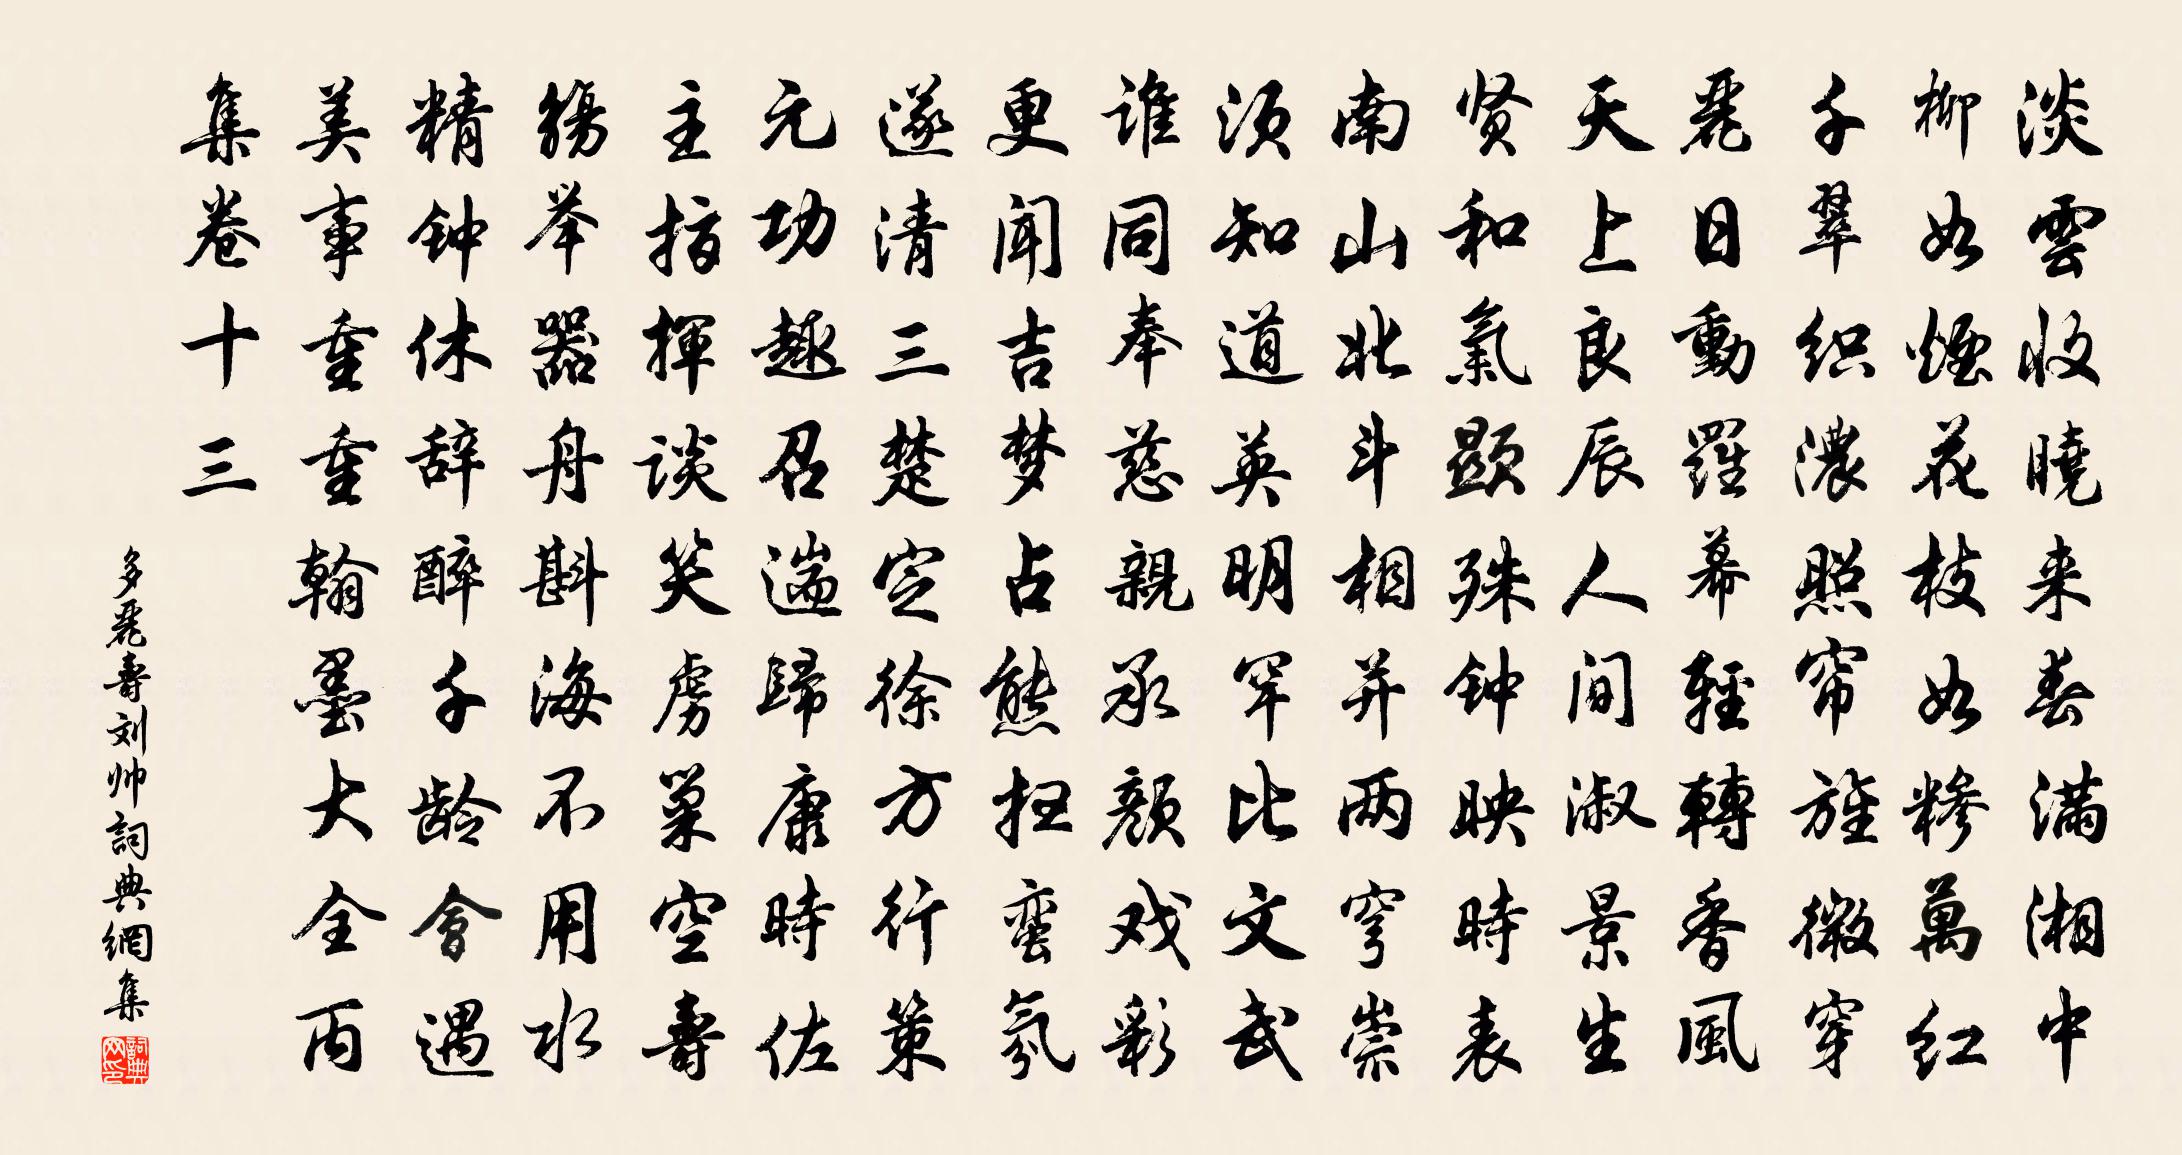 淡雲收曉来春满湘中
柳如煙花枝如糁萬红
千翠织濃照帘旌微穿
麗日動羅幕輕轉香風
天上良辰人间淑景生
贤和氣顯殊钟映時表
南山北斗相并两穹崇
须知道英明罕比文武
谁同奉慈親承颜戏彩
更闻吉梦占熊扫蛮氛
遂清三楚定徐方行策
元功趣召遄歸康時佐
主指揮谈笑虏巢空壽
觞举器舟斟海不用水
精钟休辞醉千龄會遇
美事重重翰墨大全丙
集卷十三
多麗壽刘帅詞典網集
詞典网印